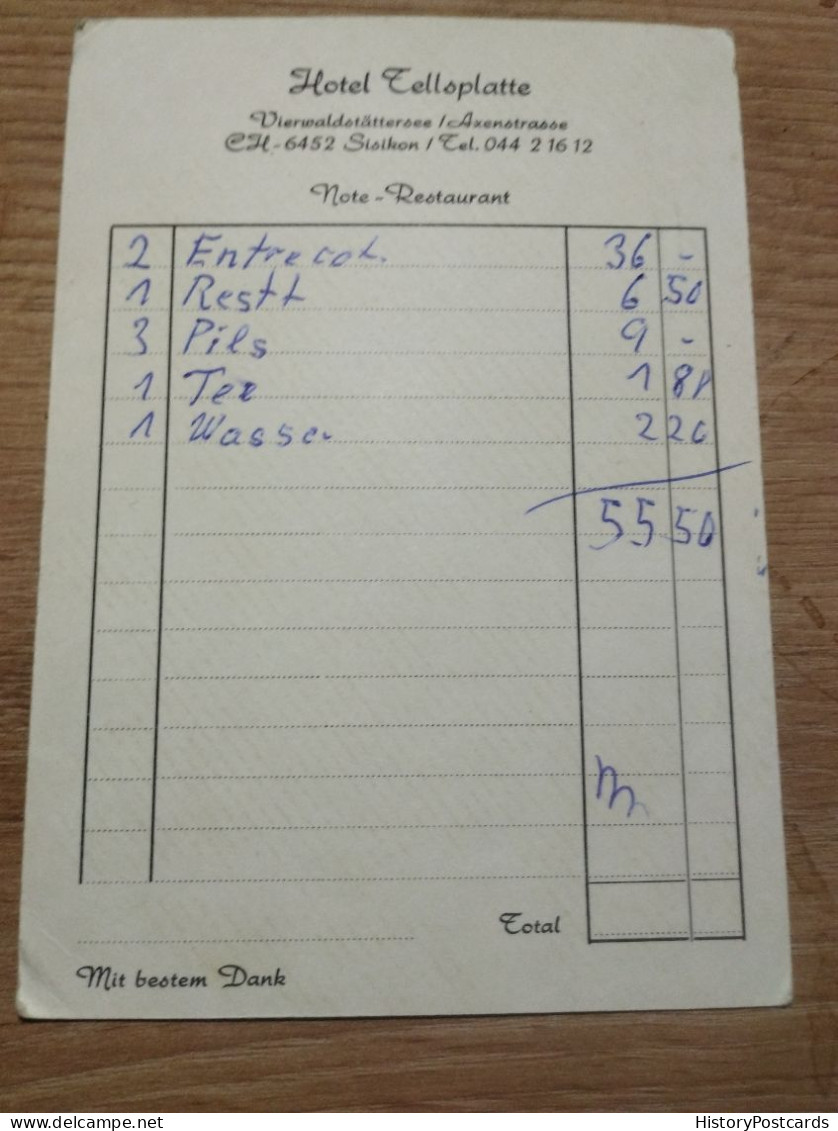 Hotel Tellsplatte
Vierwaldstättersee / Axenstrasse
CH-6452 Sisikon / Tel. 044 2 16 12
Note-Restaurant
2 Entrecot. 36 -
1 6 50
3 Pils 9 -
1 Tee 1 80
1 Wasser 2 20
55 50
Total
Mit bestem Dank
HistoryPostcards